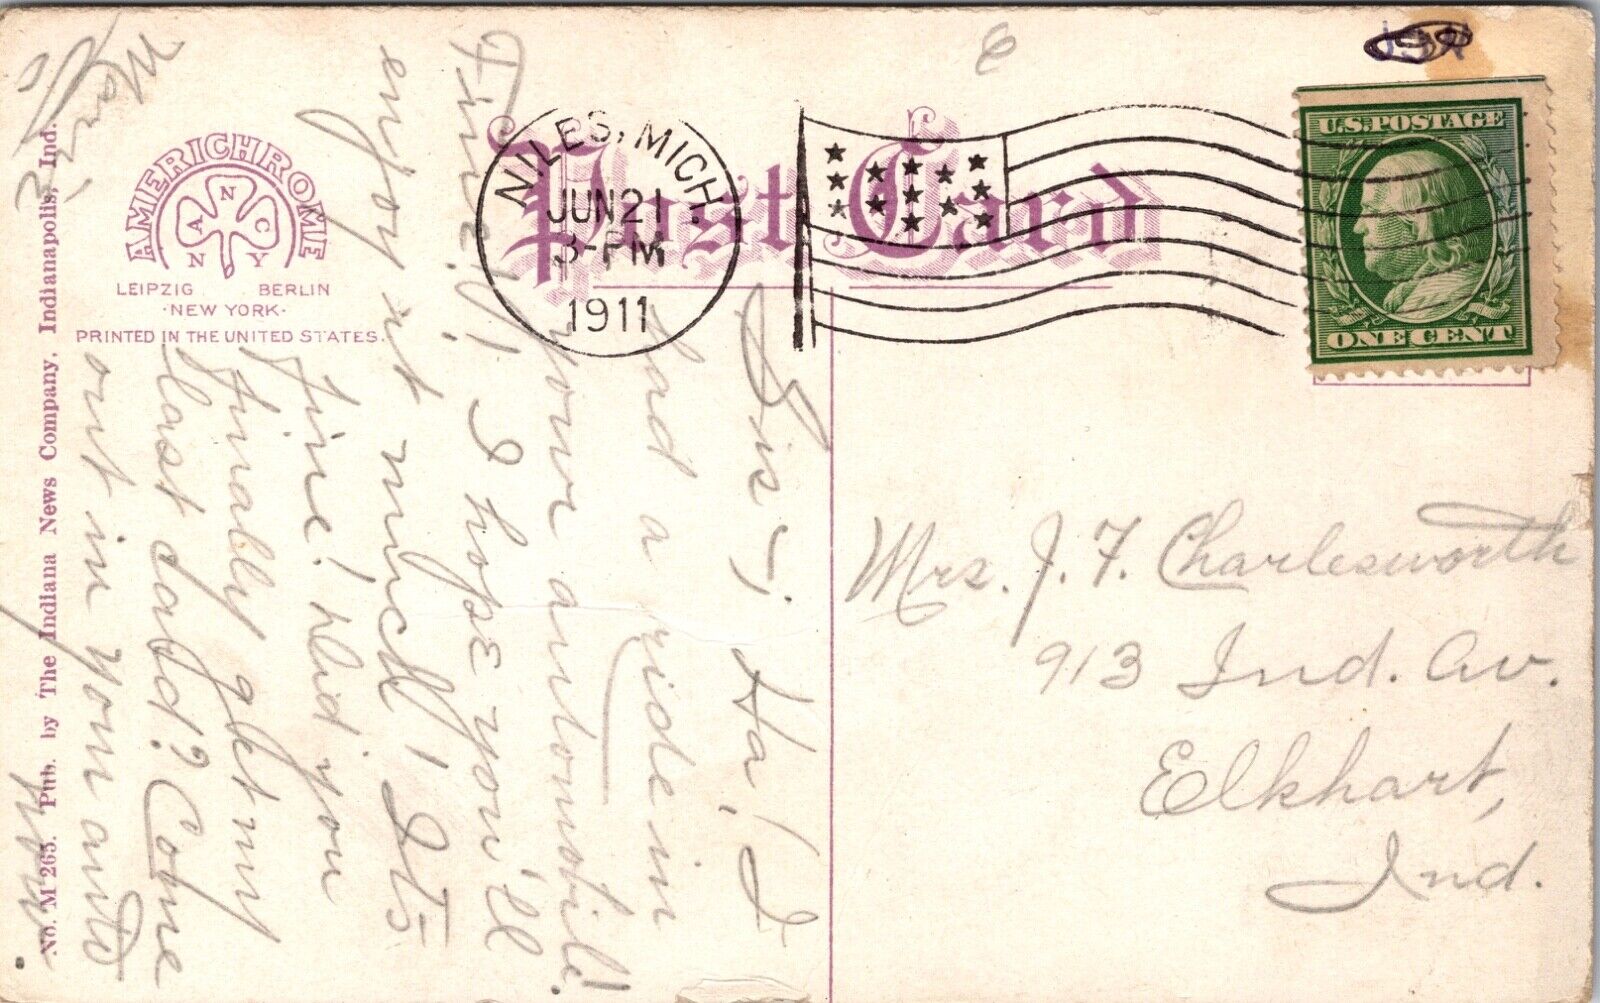 AMERICHROME
A N C
N Y
LEIPZIG BERLIN
·NEW YORK·
PRINTED IN THE UNITED STATES.
Post Card
NILES, MICH.
JUN 21
3-PM
1911
U.S.POSTAGE
ONE CENT
No. M 265. Pub. by The Indiana News Company, Indianapolis, Ind.
Sis :- Ha! I
had a ride in
your automobile!
Fine!!! I hope you'll
enjoy it much! Its
fine! Did you
finally get my
last card? Come
out in your auto
now
Mrs. J. F. Charlesworth
913 Ind. Av.
Elkhart,
Ind.